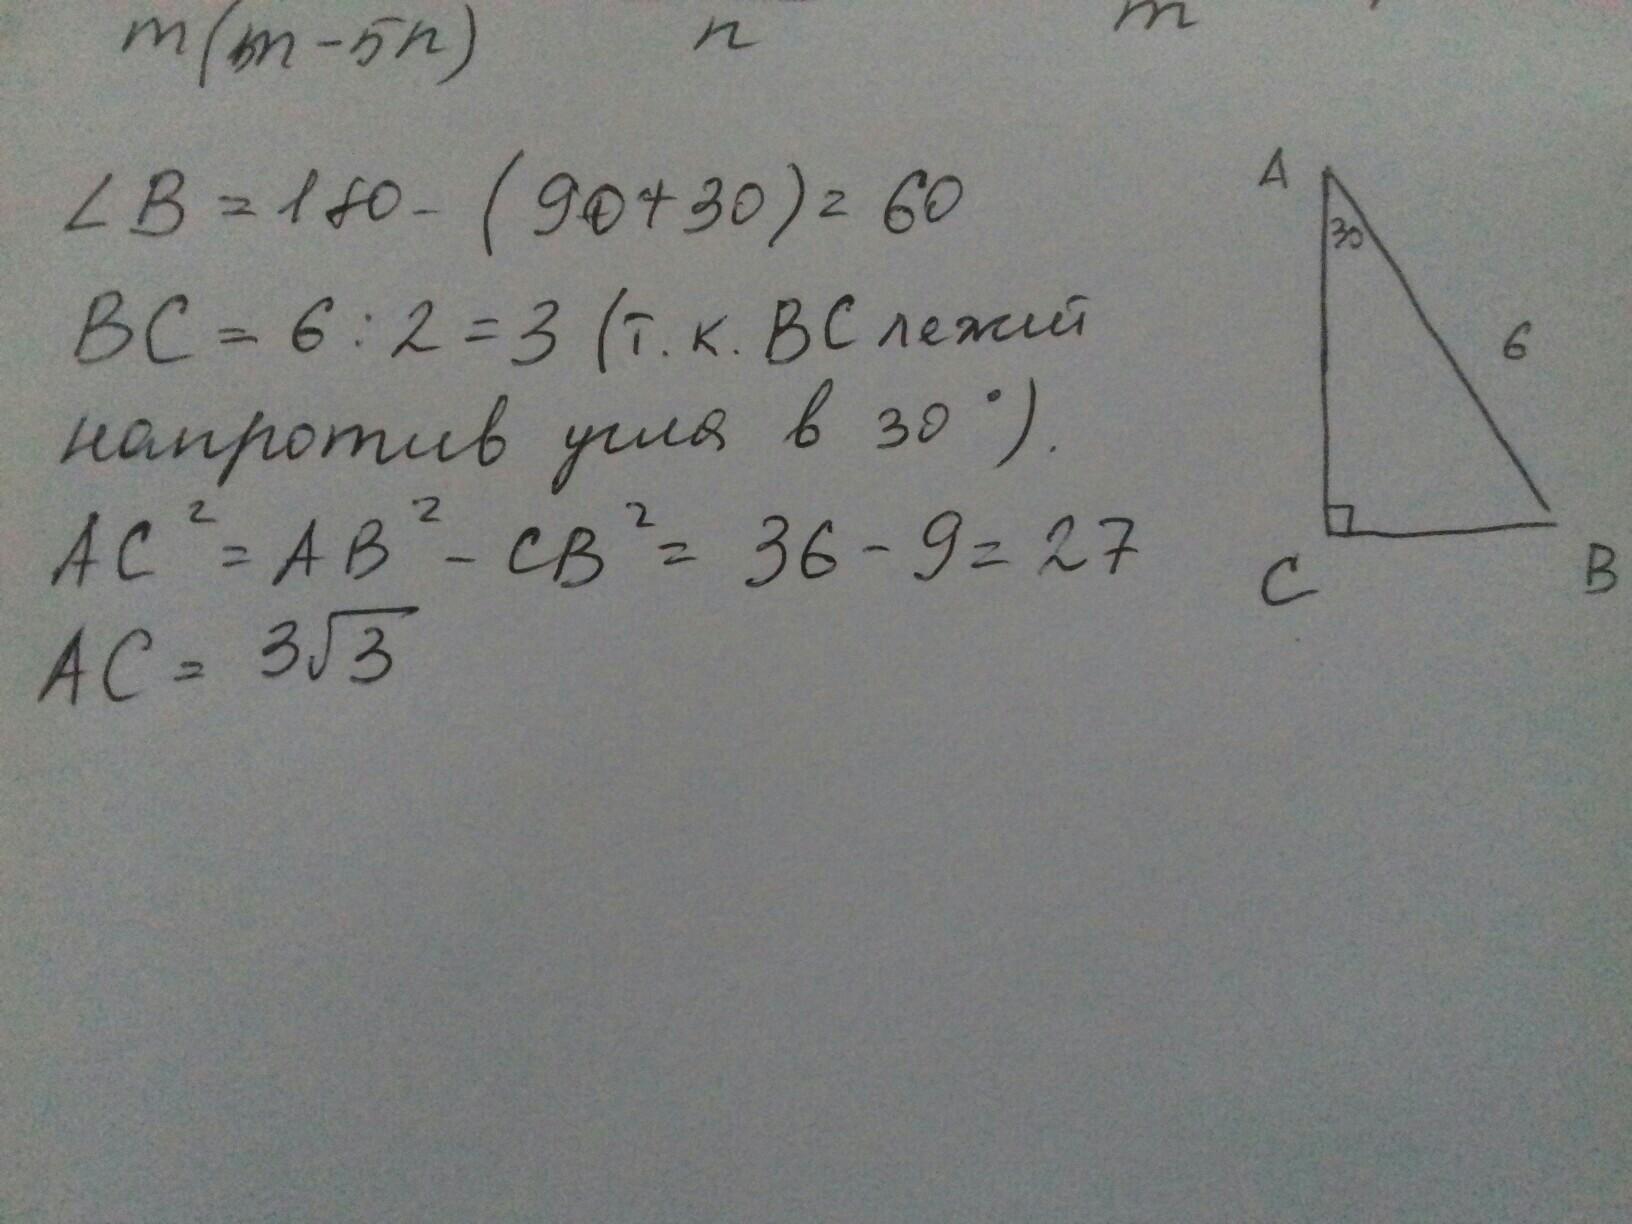 m(m-5n) n m
∠B = 180 - (90+30) = 60
BC = 6 : 2 = 3 (т.к. BC лежит
напротив угла в 30°).
AC² = AB² - CB² = 36 - 9 = 27
AC = 3√3
A
30
6
C
B